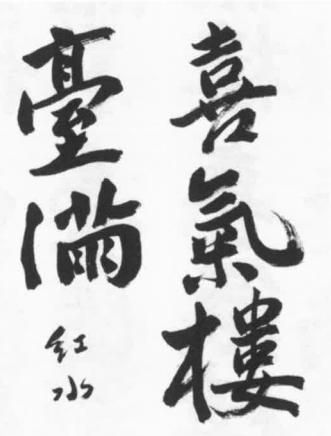 喜氣樓
臺滿
紅水